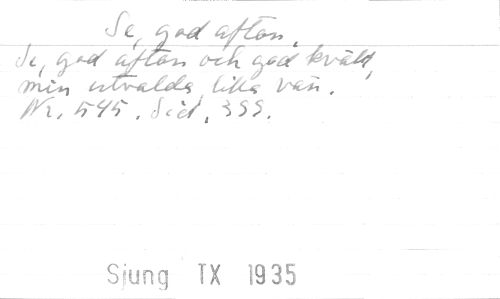 Se, god afton,
Se, god afton och god kväld,
min utvalda lilla vän.
Nr. 545. Sid. 399.
Sjung TX 1935